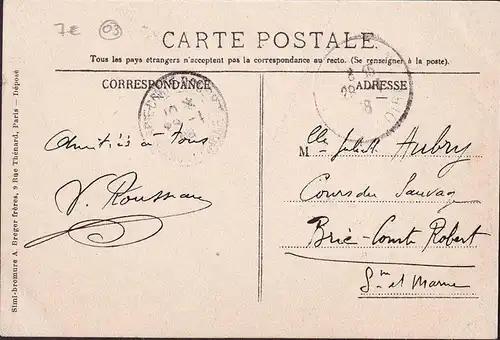 7€ 03
CARTE POSTALE
Tous les pays étrangers n'acceptent pas la correspondance au recto. (Se renseigner à la poste.)
CORRESPONDANCE
Amitiés à Tous
V. Rousseau
ADRESSE
Mlle Juliette Aubry
Cours du Sauvag
Brie-Comte Robert
S. et Marne
Simi-bromure A. Breger frères, 9 Rue Thénard, Paris — Déposé